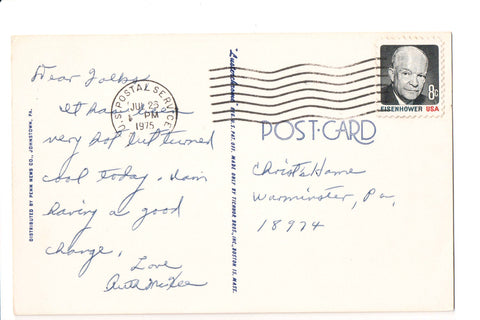 Dear Folks,
It has been
very hot but turned
cool today. Am
having a good
change.
Love
Ruth McKee
U.S. POSTAL SERVICE
JUL 28
PM
1975
8c
EISENHOWER USA
POST-CARD
Christ's Home
Warminster, Pa,
18974
DISTRIBUTED BY PENN NEWS CO., JOHNSTOWN, PA.
REG. U.S. PAT. OFF. MADE ONLY BY TICHNOR BROS., INC., BOSTON 15, MASS.